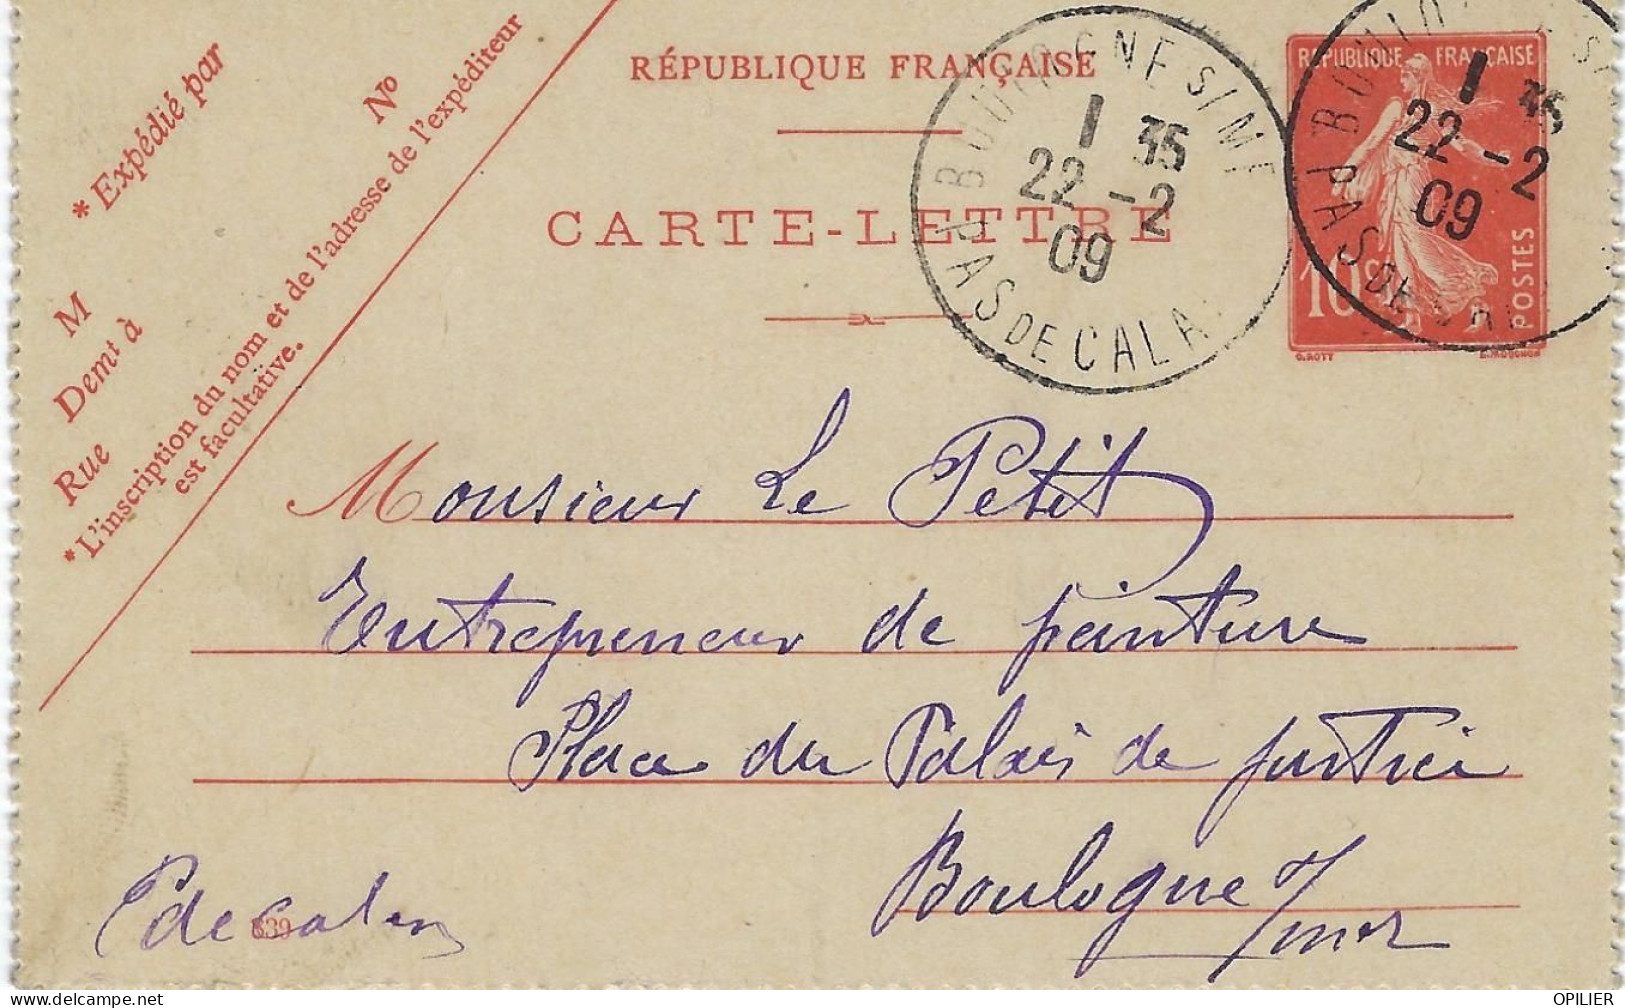 * Expédié par
M
Demt à
Rue
No
*L'inscription du nom et de l'adresse de l'expéditeur
est facultative.
RÉPUBLIQUE FRANÇAISE
CARTE-LETTRE
BOULOGNE S/MER
1 35
22 -2
09
PAS DE CALAIS
RÉPUBLIQUE FRANÇAISE
10c
POSTES
O.ROTY
E.MOUCHON
1 35
22 -2
09
PAS DE CAL
Monsieur Le Petit
Entrepreneur de peinture
Place du Palais de justice
Boulogne s/mer
P de Calais
839
OPILIER